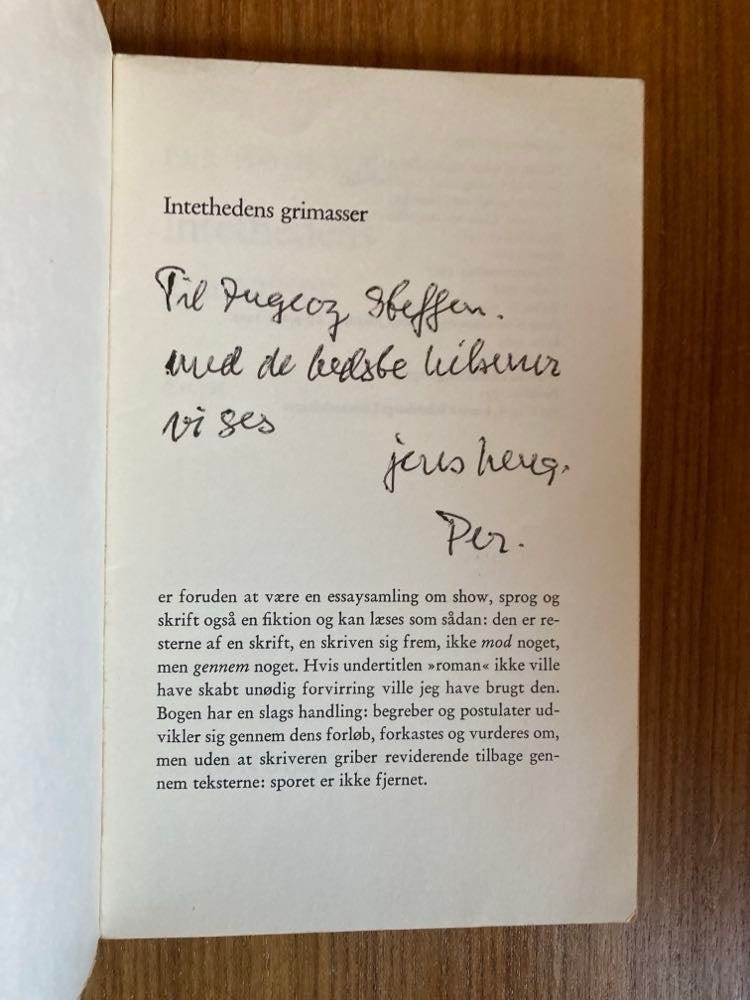 Intethedens grimasser
Til Inge og Steffen.
med de bedste hilsener
vi ses
jeres heng.
Per.
er foruden at være en essaysamling om show, sprog og
skrift også en fiktion og kan læses som sådan: den er re-
sterne af en skrift, en skriven sig frem, ikke mod noget,
men gennem noget. Hvis undertitlen »roman« ikke ville
have skabt unødig forvirring ville jeg have brugt den.
Bogen har en slags handling: begreber og postulater ud-
vikler sig gennem dens forløb, forkastes og vurderes om,
men uden at skriveren griber reviderende tilbage gen-
nem teksterne: sporet er ikke fjernet.